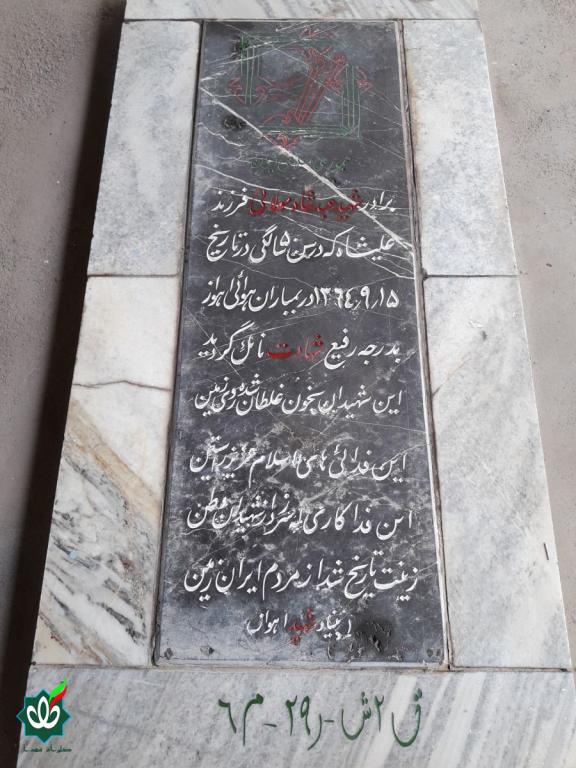 جمهوری اسلامی ایران
برادر شهید عبدشاه مولائی فرزند
علیشاه که در سن ۵ سالگی در تاریخ
۱۳۶۴٫۹٫۱۵ در بمباران هوائی اهواز
بدرجه رفیع شهادت نائل گردید
این شهیدان بخون غلطان شده روی زمین
این فدائی های اسلام عزیز راستین
این فداکاری شهیدان وطن
زینت تاریخ شد از مردم ایران زمین
بنیاد شهید اهواز
ق۲ ش-ر۲۹-م۶